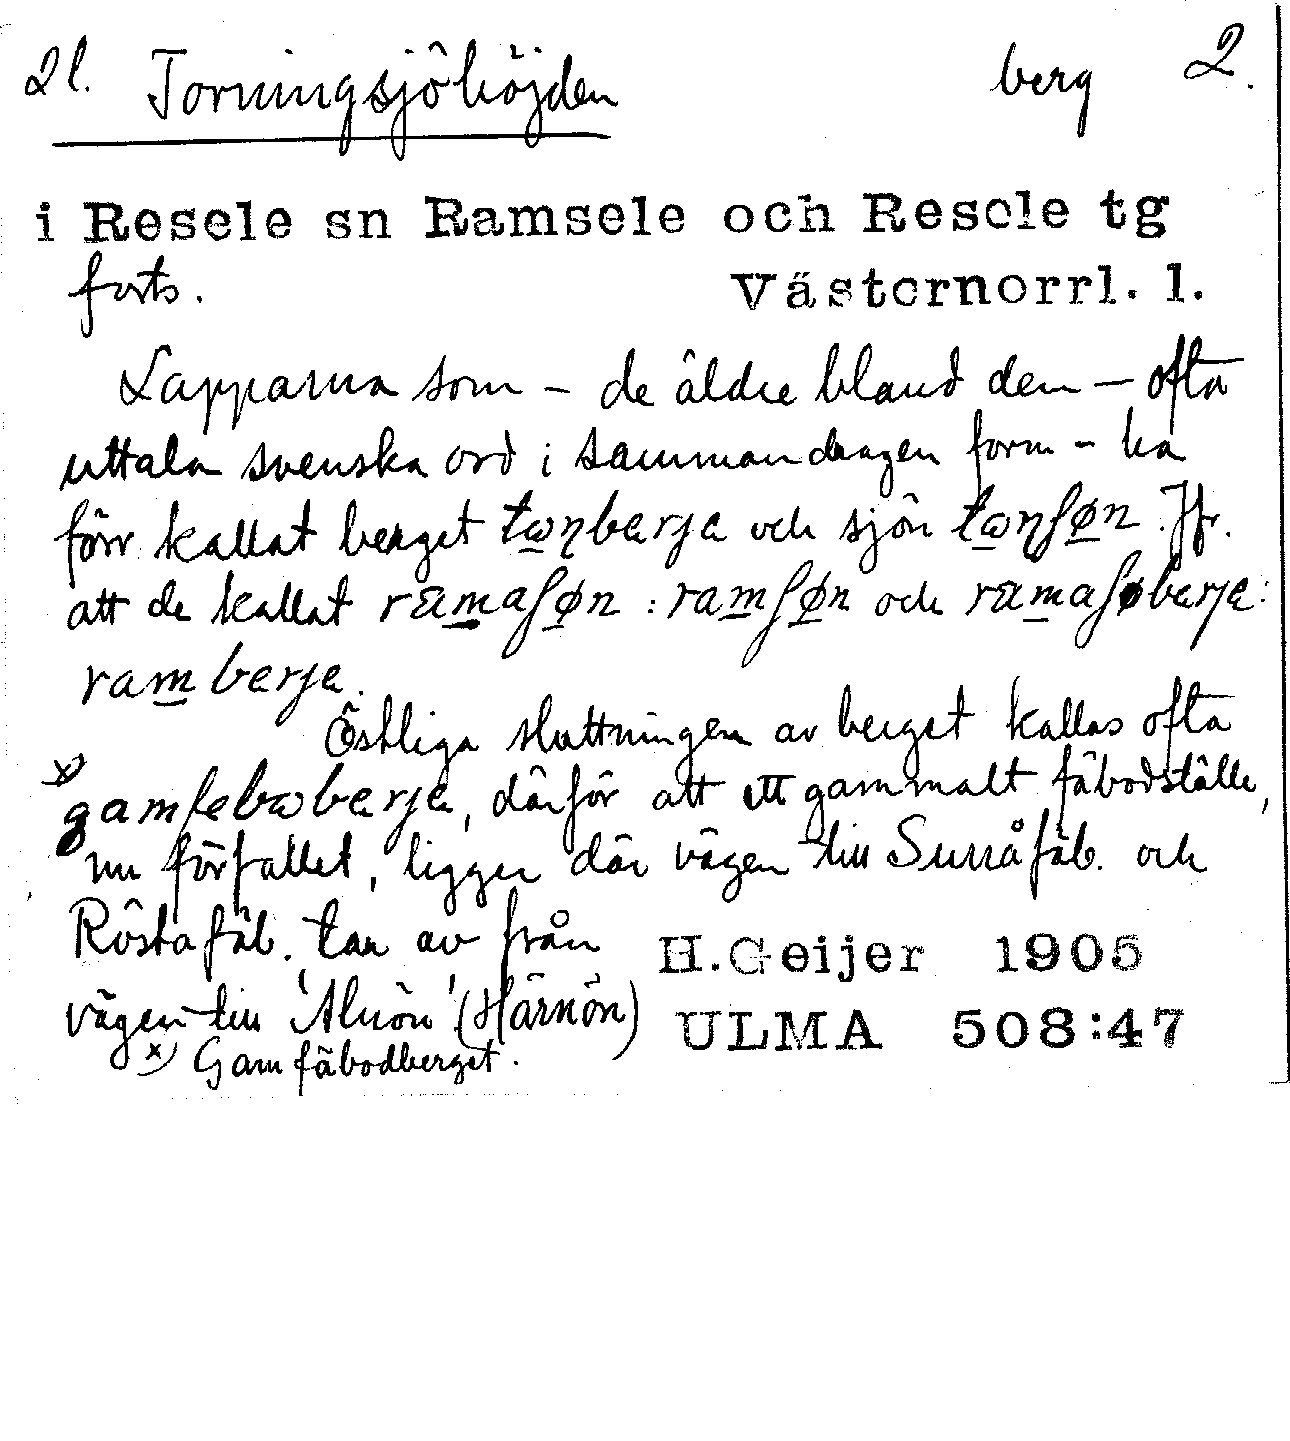 2l. Torningsjöhöjden berg 2.
i Resele sn Ramsele och Resele tg
forts. Västernorrl. l.
Lapparna som – de äldre bland dem – ofta
uttala svenska ord i sammandragen form – ha
förr kallat berget tωŋberje och sjön tωŋʃøn. Jfr.
att de kallat ramaʃøn : ramʃøn och ramaʃøberje:
ramberje.
Östliga sluttningen av berget kallas ofta
x) gamfebωberje, därför att ett gammalt fäbodställe,
nu förfallet, ligger där vägen till Sunnåfäb. och
Röstafäb. tar av från H.Geijer 1905
vägen till 'Alnön' (Härnön) ULMA 508:47
x) Gamfäbodberget.